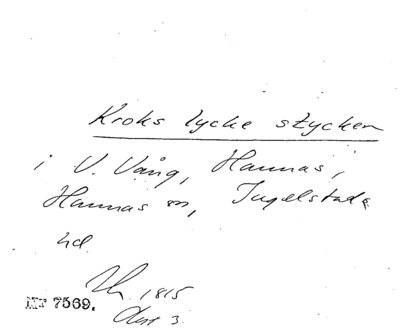 Kroks lycke stycken
i V. Vång, Hannas,
Hannas sn, Ingelstads
hd
1815
Akt 3.
Nr 7569.